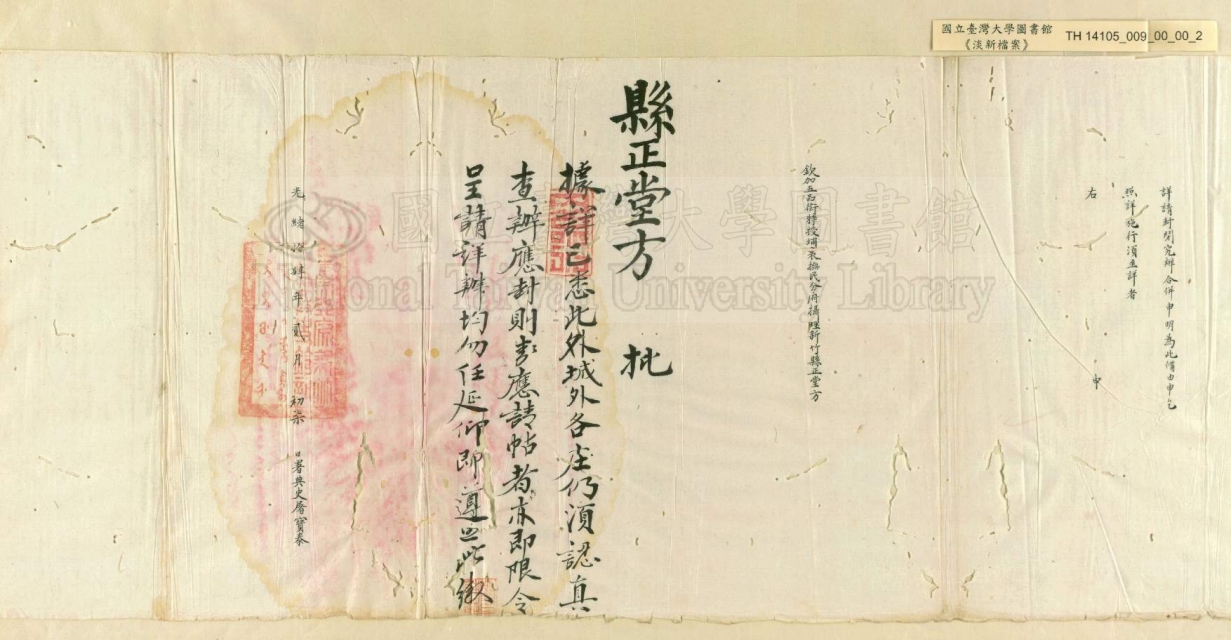 國立臺灣大學圖書館
《淡新檔案》
TH 14105_009_00_00_2
詳請封閉究辦合併申明為此備由申乞
照詳施行須至詳者
右 申
欽加五品銜特授埔裏撫民分府攝理新竹縣正堂方
縣正堂方 批
據詳已悉此外城外各庄仍須認真
查辦應封則封應請帖者亦即限令
呈請詳辦均勿任延仰即遵照此繳
光緒拾肆年貳月初柒日署典史
國立臺灣大學圖書館
National Taiwan University Library